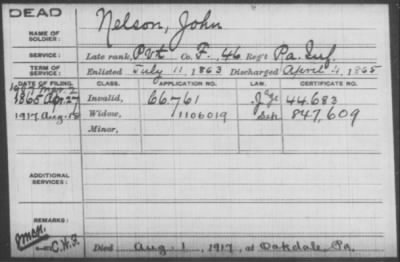 DEAD
NAME OF SOLDIER: Nelson, John
SERVICE: Late rank, Pvt Co. F, 46 Reg't Pa. Inf.
TERM OF SERVICE: Enlisted July 11, 1863 Discharged April 4, 1865
DATE OF FILING. CLASS. APPLICATION NO. LAW. CERTIFICATE NO.
1865 Apr. 27 Invalid, 66.761 44.683
1917 Aug. 18 Widow, 1106019 847,609
Minor,
ADDITIONAL SERVICES:
REMARKS:
C.W.F.
Died Aug. 1, 1917, at Oakdale, Pa.